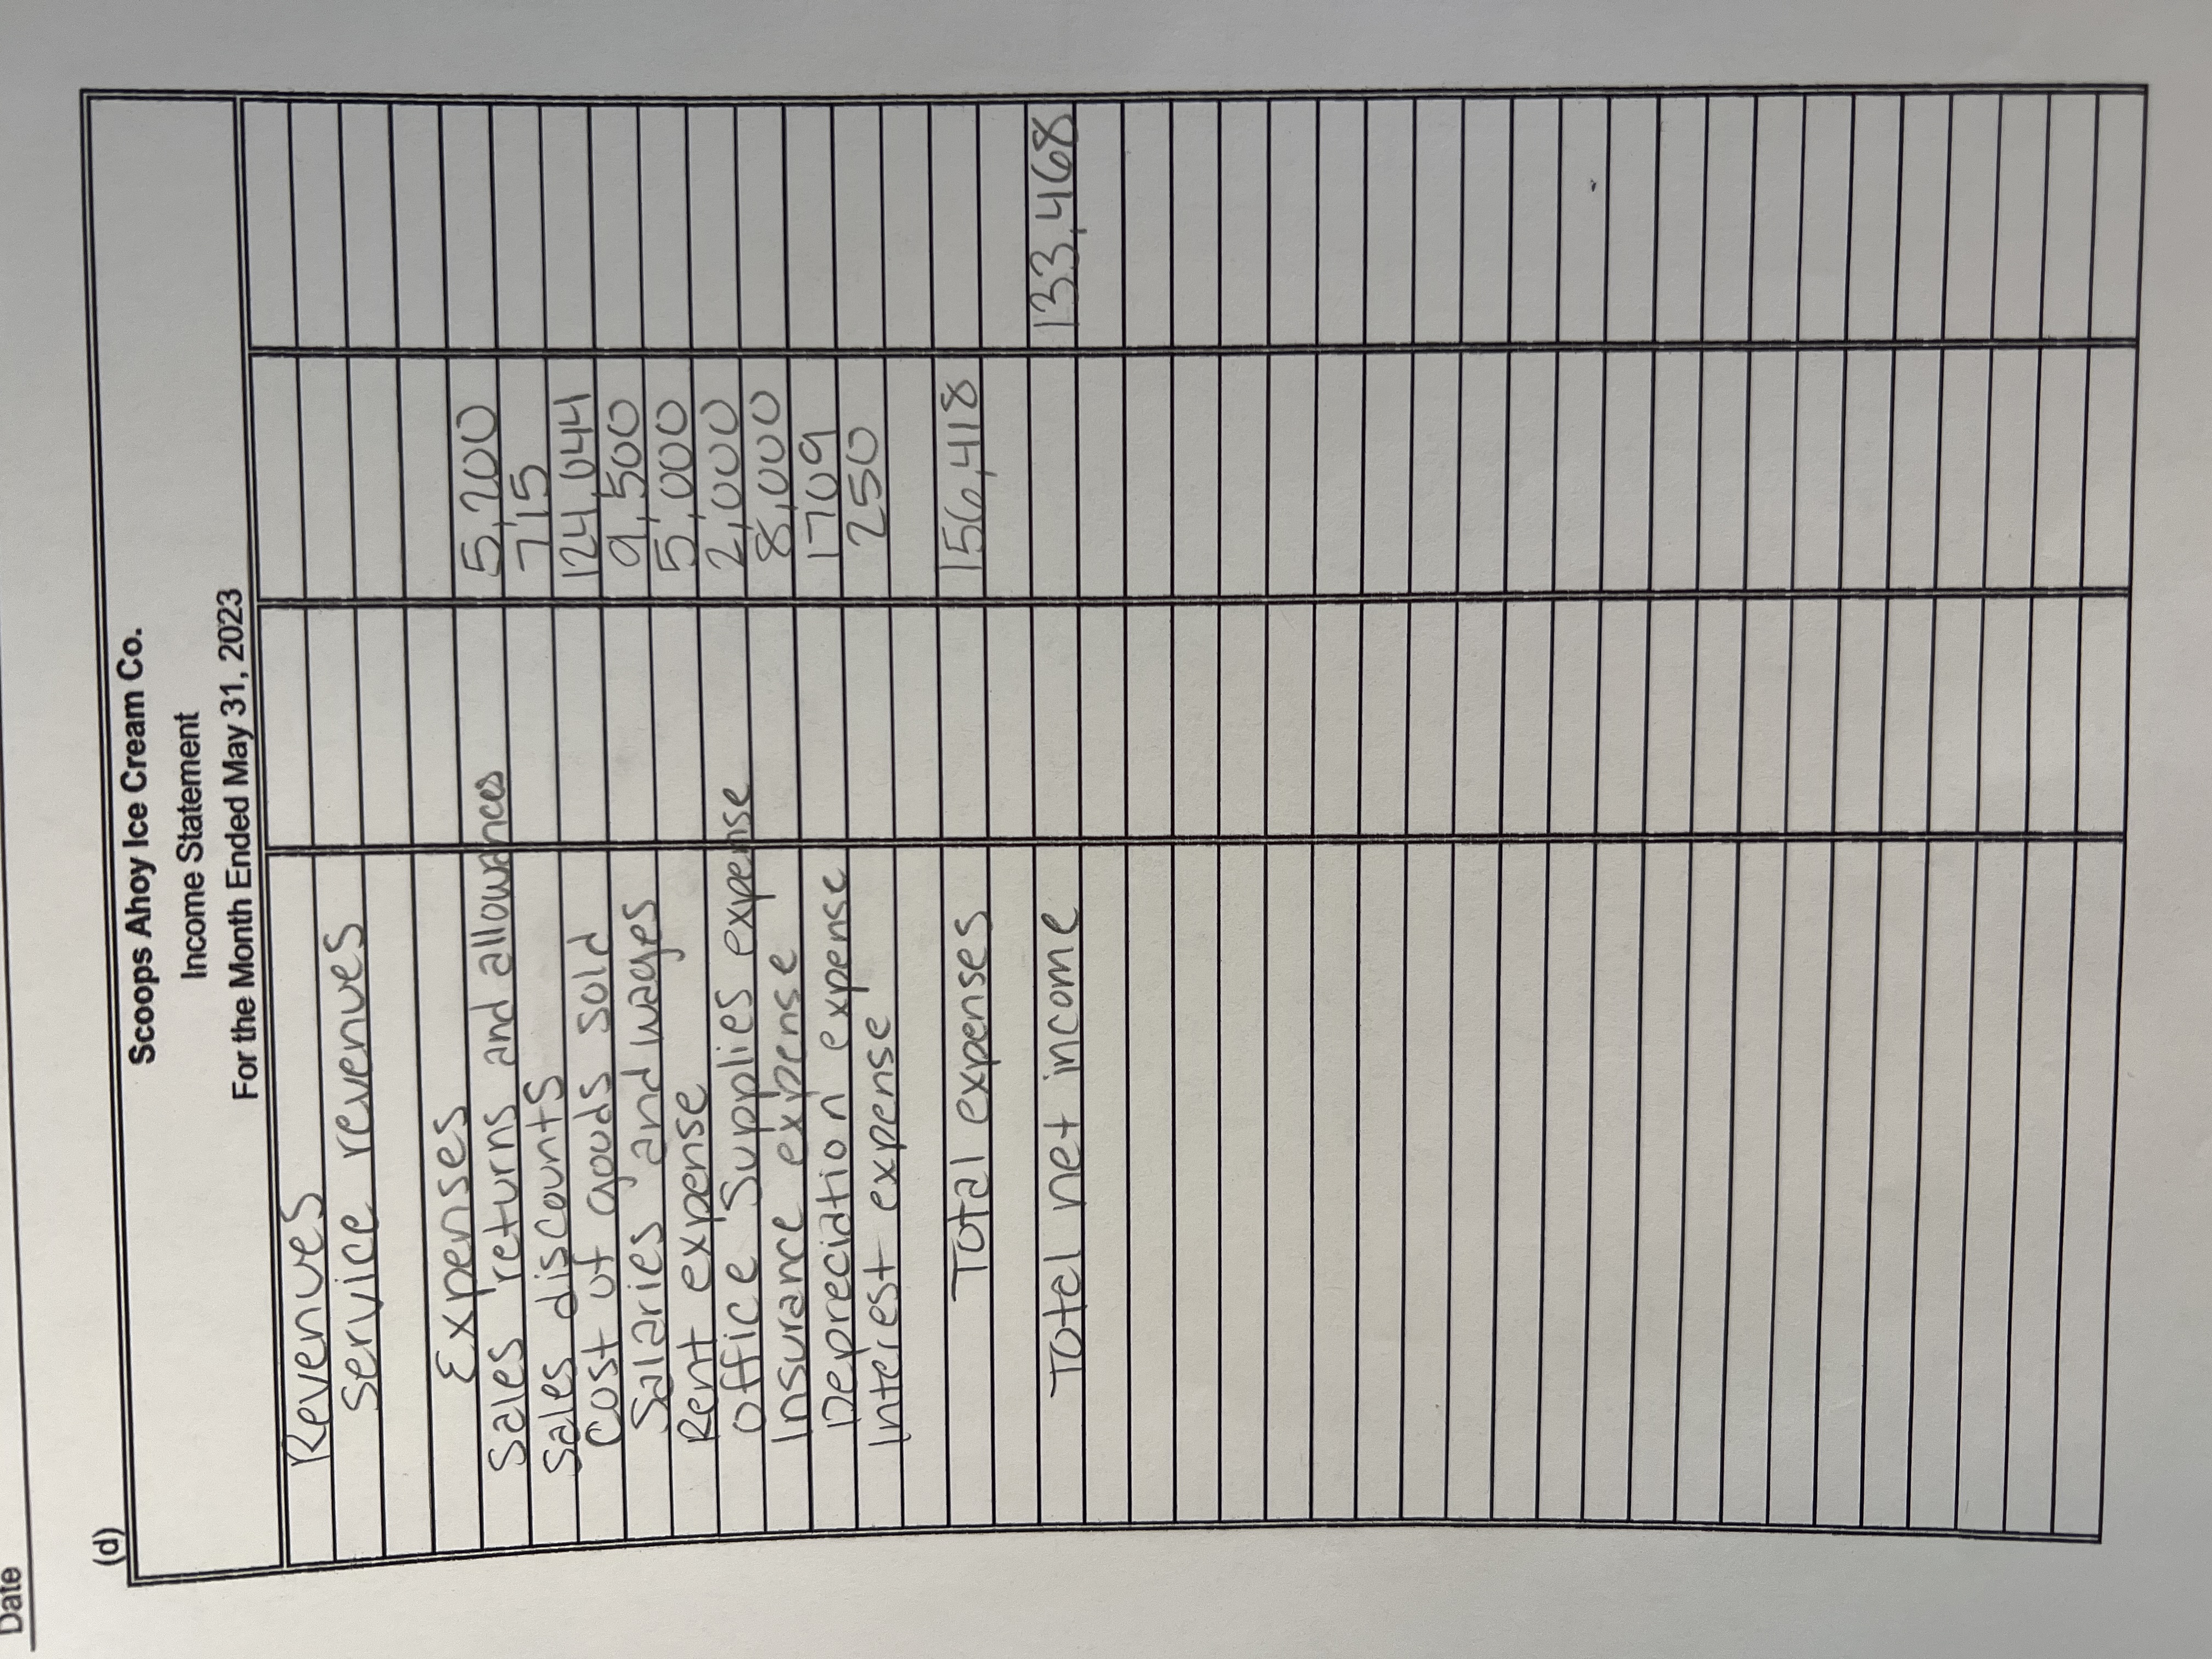 Date
(d)
Scoops Ahoy Ice Cream Co.
Income Statement
For the Month Ended May 31, 2023
Revenues
service revenues
Expenses
Sales returns and allowances 5,200
Sales discounts 715
Cost of goods sold 124,044
Salaries and wages 9,500
Rent expense 5,000
Office Supplies expense 2,000
Insurance expense 8,000
Depreciation expense 1709
Interest expense 250
Total expenses 156,418
Total net income 133,468